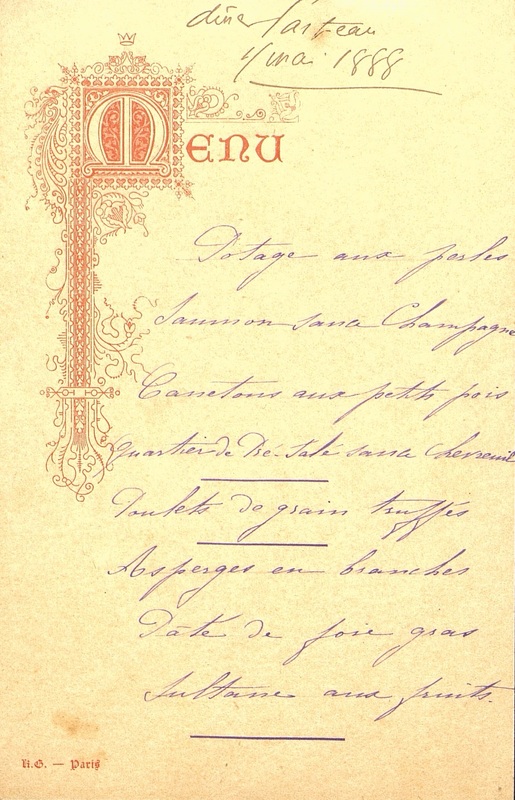 diner Pasteau
4 mai 1888
MENU
Potage aux perles
Saumon sauce Champagne
Canetons aux petits pois
Quartier de Pré-Salé sauce chevreuil
Poulets de grain truffés
Asperges en branches
Pâté de foie gras
Sultane aux fruits.
H.G. — Paris